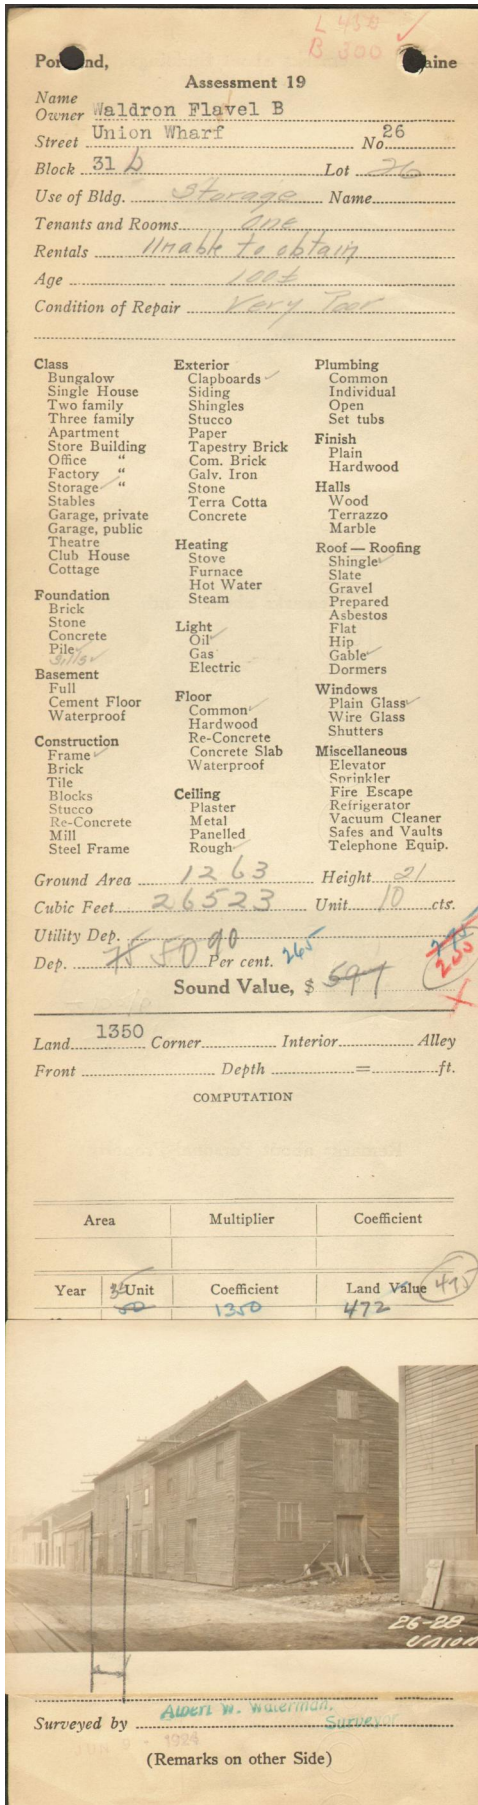 L 450
B 300
Portland, Maine
Assessment 19
Name
Owner Waldron Flavel B
Street Union Wharf No 26
Block 31 b Lot 26
Use of Bldg. Storage Name
Tenants and Rooms one
Rentals Unable to obtain
Age 100±
Condition of Repair Very Poor
Class
Bungalow
Single House
Two family
Three family
Apartment
Store Building
Office "
Factory "
Storage "
Stables
Garage, private
Garage, public
Theatre
Club House
Cottage
Foundation
Brick
Stone
Concrete
Pile
Sills
Basement
Full
Cement Floor
Waterproof
Construction
Frame
Brick
Tile
Blocks
Stucco
Re-Concrete
Mill
Steel Frame
Exterior
Clapboards
Siding
Shingles
Stucco
Paper
Tapestry Brick
Com. Brick
Galv. Iron
Stone
Terra Cotta
Concrete
Heating
Stove
Furnace
Hot Water
Steam
Light
Oil
Gas
Electric
Floor
Common
Hardwood
Re-Concrete
Concrete Slab
Waterproof
Ceiling
Plaster
Metal
Panelled
Rough
Plumbing
Common
Individual
Open
Set tubs
Finish
Plain
Hardwood
Halls
Wood
Terrazzo
Marble
Roof — Roofing
Shingle
Slate
Gravel
Prepared
Asbestos
Flat
Hip
Gable
Dormers
Windows
Plain Glass
Wire Glass
Shutters
Miscellaneous
Elevator
Sprinkler
Fire Escape
Refrigerator
Vacuum Cleaner
Safes and Vaults
Telephone Equip.
Ground Area 1263 Height 21
Cubic Feet 26523 Unit 10 cts.
Utility Dep.
Dep. 75 50 90 Per cent. 265
Sound Value, $ 597
Land 1350 Corner Interior Alley
Front Depth = ft.
COMPUTATION
Area Multiplier Coefficient
Year 35 Unit Coefficient Land Value 475
50 1350 472
26-28
Union
Surveyed by Albert W. Waterman,
Surveyor
- 1924
(Remarks on other Side)